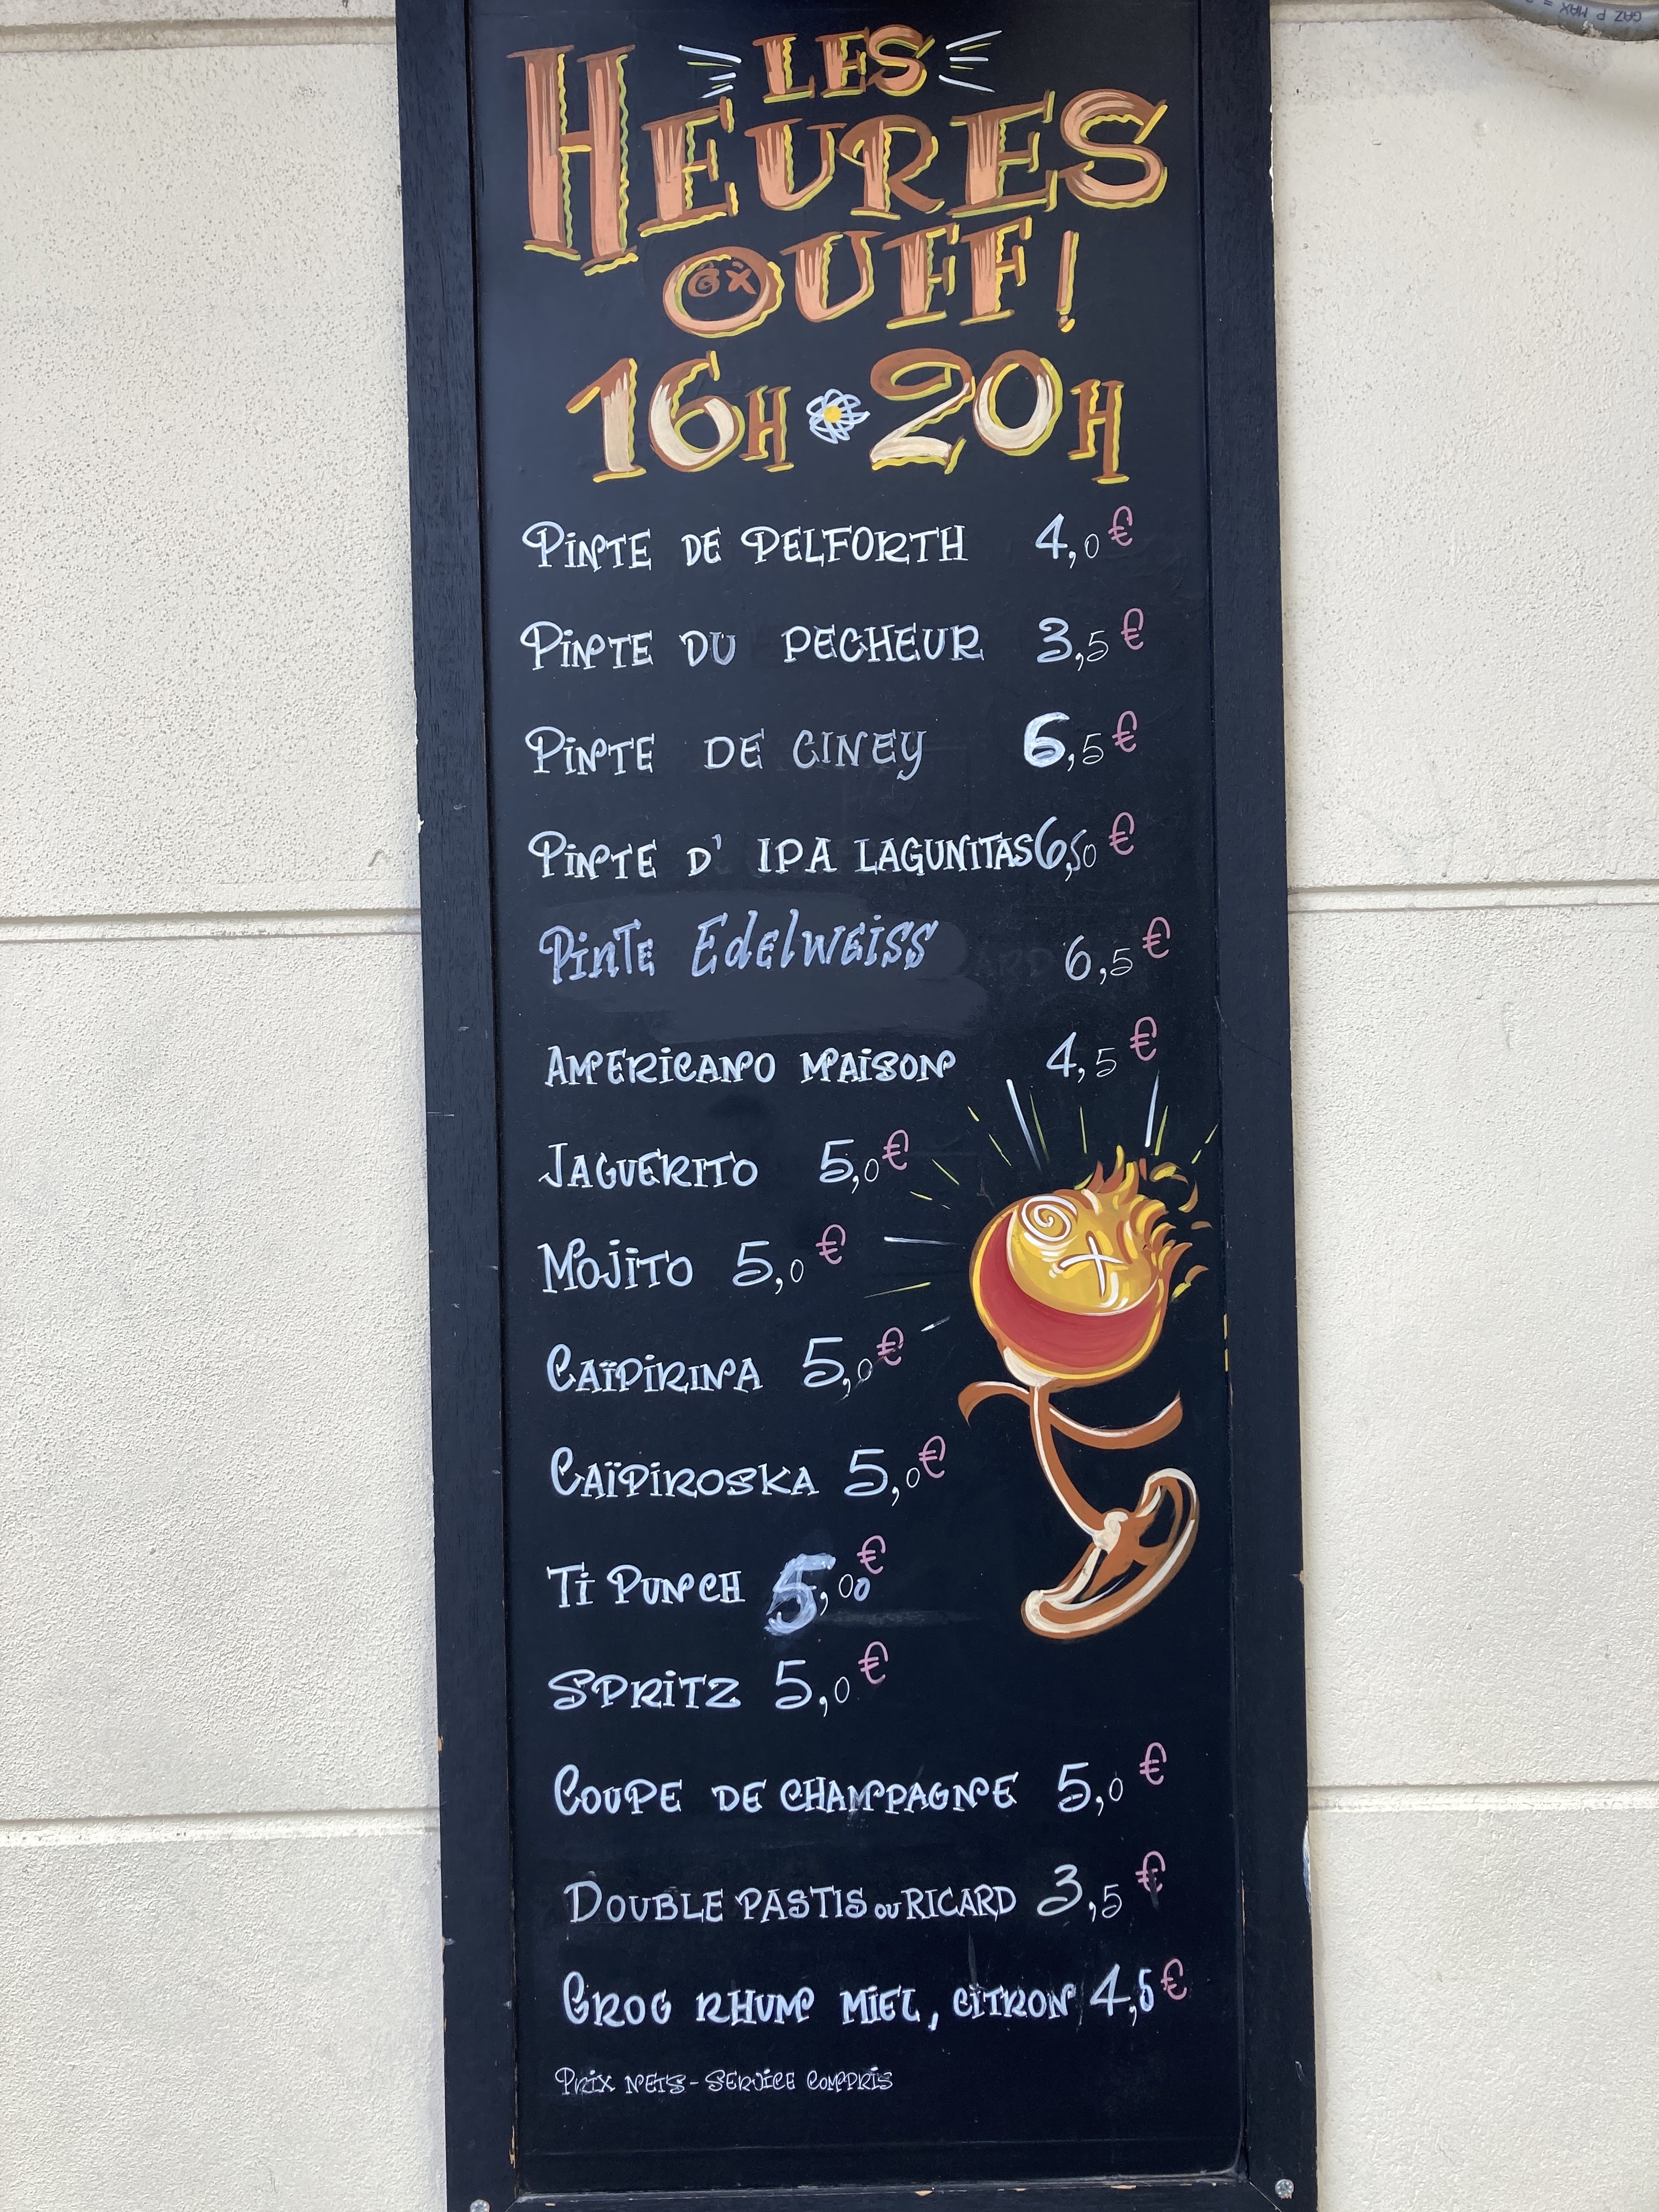 LES
HEURES
OUFF!
16H 20H
PINTE DE PELFORTH 4,0€
PINTE DU PECHEUR 3,5€
PINTE DE CINEY 6,5€
PINTE D' IPA LAGUNITAS 6,50€
PINTE EdelWEiSS 6,5€
AMERICANO MAISON 4,5€
JAGUERITO 5,0€
MOJITO 5,0€
CAÏPIRINA 5,0€
CAÏPIROSKA 5,0€
TI PUNCH 5,00€
SPRITZ 5,0€
COUPE DE CHAMPAGNE 5,0€
DOUBLE PASTIS OU RICARD 3,5€
GROG RHUM MIEL, CITRON 4,5€
PRIX NETS - SERVICE COMPRIS
GAZ P MAX =